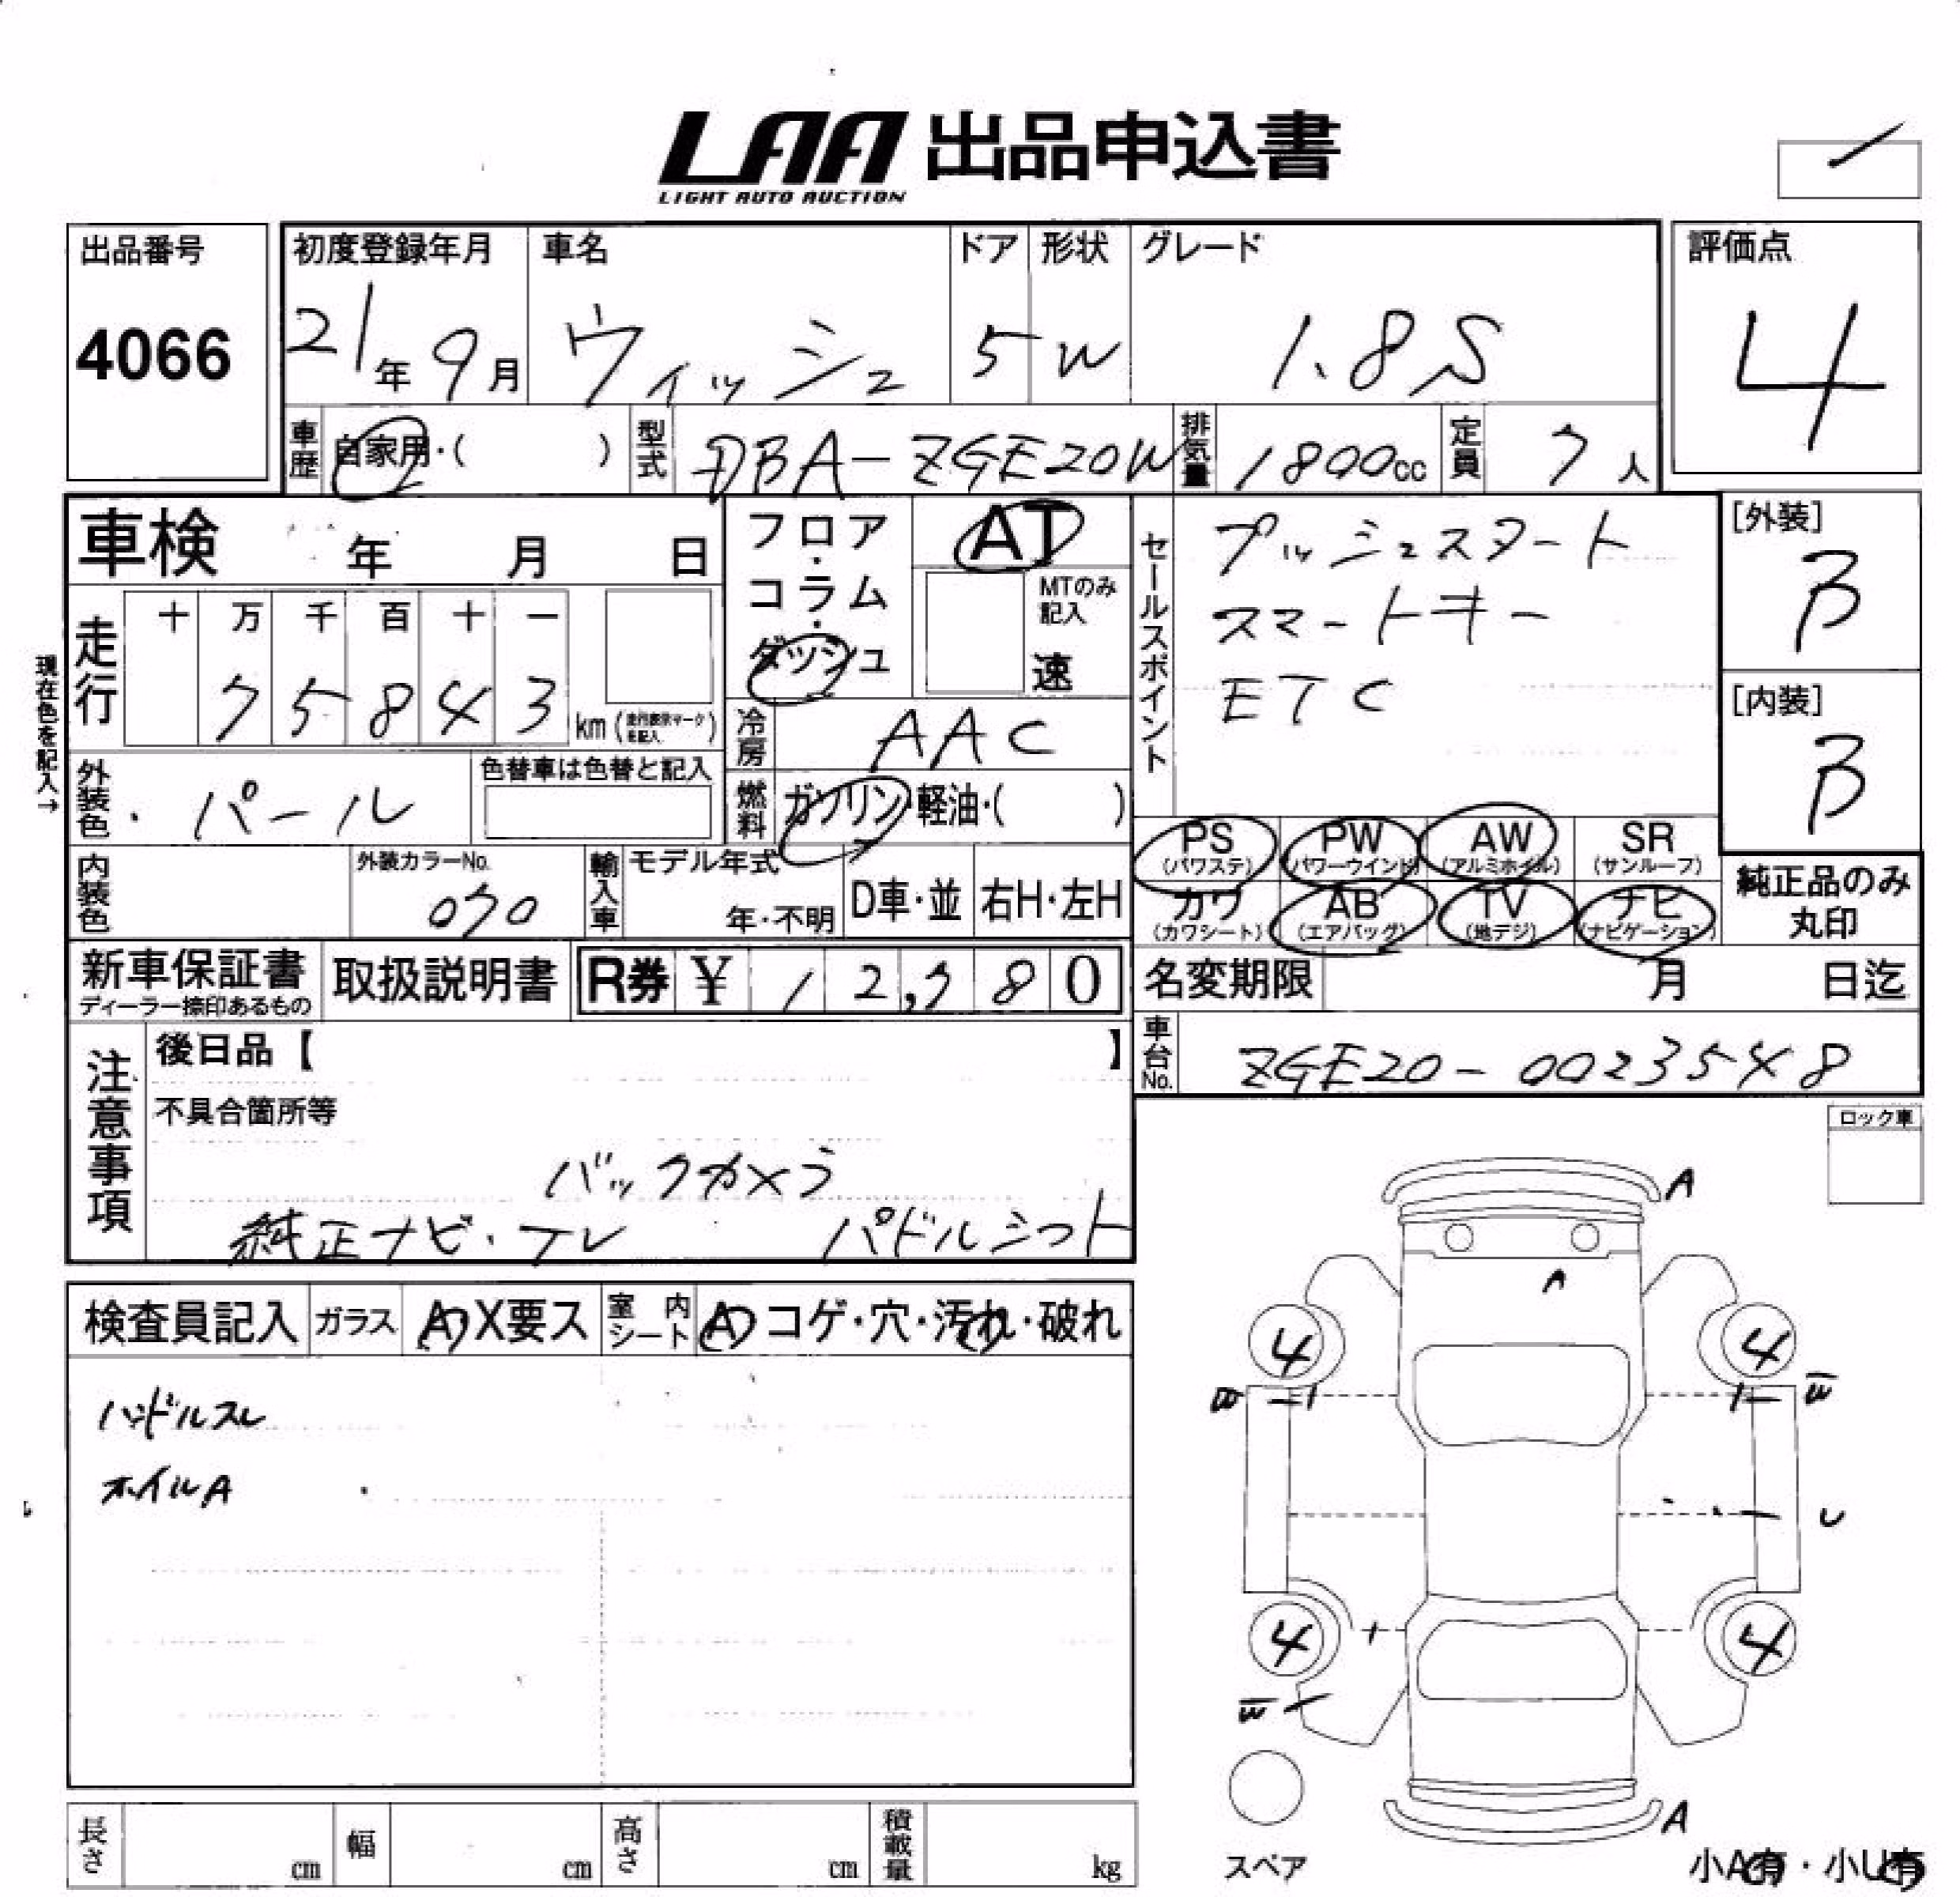 LAA 出品申込書
LIGHT AUTO AUCTION
出品番号
4066
初度登録年月
21年9月
車名
ウィッシュ
ドア
5
形状
W
グレード
1.8S
評価点
4
車歴
自家用・( )
型式
DBA-ZGE20W
排気量
1800cc
定員
7人
車検 年 月 日
フロア・コラム・ダッシュ
AT
MTのみ記入
速
セールスポイント
プッシュスタート
スマートキー
ETC
[外装]
B
[内装]
B
現在色を記入→
走行
十 万 千 百 十 一
7 5 8 4 3 km (走行表示マークを記入)
冷房
AAC
外装色
パール
色替車は色替と記入
燃料
ガソリン・軽油・( )
PS (パワステ)
PW (パワーウインド)
AW (アルミホイル)
SR (サンルーフ)
カワ (カワシート)
AB (エアバッグ)
TV (地デジ)
ナビ (ナビゲーション)
純正品のみ
丸印
内装色
外装カラーNo.
070
輸入車
モデル年式
年・不明
D車・並
右H・左H
新車保証書
ディーラー捺印あるもの
取扱説明書
R券 ¥ 12,780
名変期限 月 日迄
車台No.
ZGE20-0023548
注意事項
後日品【 】
不具合箇所等
バックカメラ
純正ナビ・TV パドルシフト
ロック車
検査員記入
ガラス
A・X要ス
室内シート
A・コゲ・穴・汚れ・破れ
ハンドルスレ
ホイルA
A
A
4 4
W W
U
4 4
W
A
スペア
小A有・小U有
長さ cm
幅 cm
高さ cm
積載量 kg